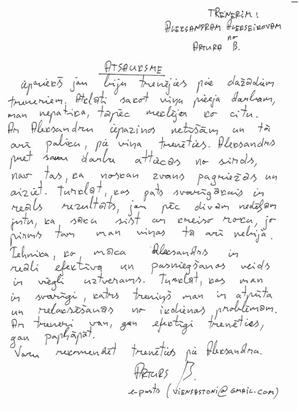 TRENERIM:
ALEKSANDRAM ALEKSEIKOVAM
no
ARTURA B.
ATSAUKSME
iepriekš jau biju trenējies pie dažādiem
treneriem, Atklāti sakot viņu pieeja darbam,
man nepatika, tāpēc meklēju ko citu.
Ar Aleksandru iepazinos netīšām un tā
arī paliku, pie viņa trenēties. Aleksandrs
pret savu darbu attiecas no sirds,
nav tas, ka noskan zvans pagriežas un
aiziet. Turklāt, kas pats svarīgākais ir
reāls rezultāts, jau pēc divām nedēļām
jutu, ka sāku sist ar kreiso roku, jo
pirms tam man viņas tā arī nebija.
Tehnika, ko māca Aleksandrs ir
reāli efektīva un pasniegšanas veids
ir viegli uztverams. Turklāt, kas man
ir svarīgi, katrs treniņš man ir atpūta
un relaksēšanās no ikdienas problēmām.
Ar treneri var, gan efektīgi trenēties,
gan papļāpāt.
Varu rekomendēt trenēties pie Aleksandra.
ARTURS B.
e-pasts (VIENSASTONI@GMAIL.COM)